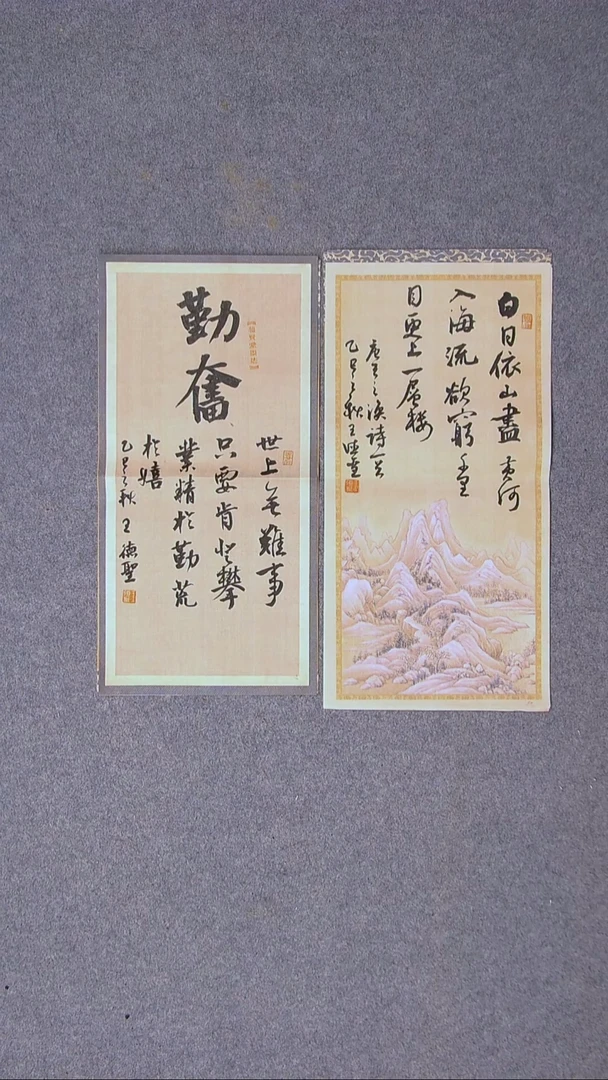 勤奮
世上無難事
只要肯登攀
業精於勤荒
於嬉
乙巳之秋 王德聖
白日依山盡 黄河
入海流 欲窮千里
目更上一層楼
唐王之渙詩一首
乙巳之秋王德聖